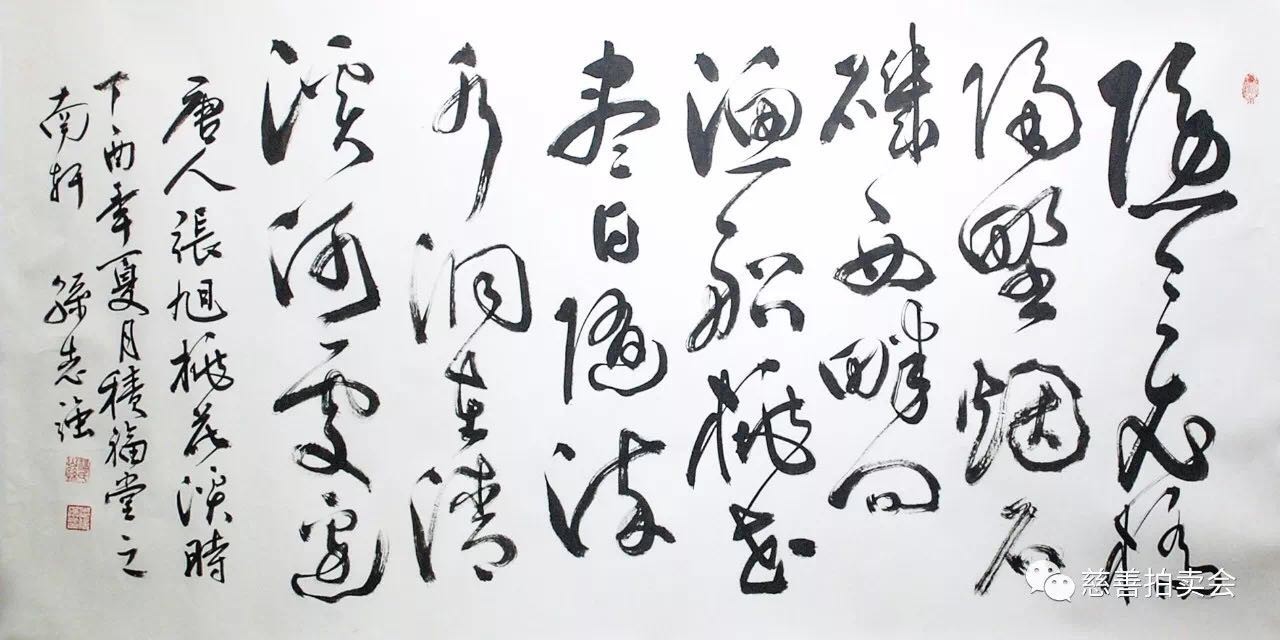 隱〻飛橋
隔野烟石
磯西畔问
渔船桃花
尽日随流
水洞在清
溪何處邊
唐人張旭桃花溪時
丁酉年夏月積福堂之
南軒 孫志強
慈善拍卖会